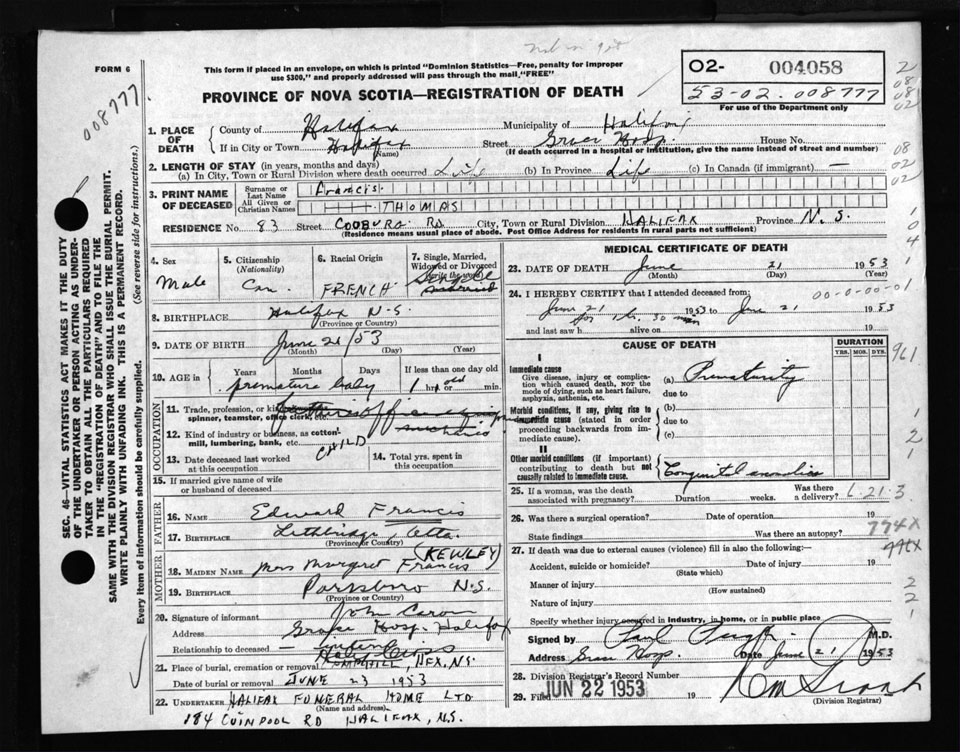 FORM 6
This form if placed in an envelope, on which is printed "Dominion Statistics—Free, penalty for improper
use $300," and properly addressed will pass through the mail, "FREE"
PROVINCE OF NOVA SCOTIA—REGISTRATION OF DEATH
O2- 004058
53-02. 008777
For use of the Department only
008777.
2
08
08
02
1. PLACE OF DEATH County of Halifax Municipality of Halifax
If in City or Town Halifax (Name) Street Grace Hosp. House No.
(If death occurred in a hospital or institution, give the name instead of street and number)
2. LENGTH OF STAY (in years, months and days)
(a) In City, Town or Rural Division where death occurred Life (b) In Province Life (c) In Canada (if immigrant) —
08
02
3. PRINT NAME OF DECEASED
Surname or Last Name Francis.
All Given or Christian Names THOMAS
RESIDENCE No. 83 Street COOBURG RD City, Town or Rural Division HALIFAX Province N.S.
(Residence means usual place of abode. Post Office Address for residents in rural parts not sufficient)
1
04
1
4. Sex Male
5. Citizenship (Nationality) Can.
6. Racial Origin FRENCH
7. Single, Married, Widowed or Divorced (write the word) Single
8. BIRTHPLACE Halifax N.S.
(Province or Country)
9. DATE OF BIRTH June 21/53
(Month) (Day) (Year)
10. AGE in Years Months Days If less than one day old
premature baby 1 hr. or min.
OCCUPATION
11. Trade, profession, or kind
spinner, teamster, office clerk, etc.
12. Kind of industry or business, as cotton
mill, lumbering, bank, etc. CHILD
13. Date deceased last worked at this occupation
14. Total yrs. spent in this occupation
15. If married give name of wife or husband of deceased
FATHER
16. NAME Edward Francis
17. BIRTHPLACE Lethbridge, Alta.
(Province or Country)
MOTHER
18. MAIDEN NAME Mrs Margret Francis (KEWLEY)
19. BIRTHPLACE Parrsboro N.S.
(Province or Country)
20. Signature of informant John Caron
Address Grace Hosp. Halifax
Relationship to deceased
21. Place of burial, cremation or removal CAMPHILL, HFX, N.S.
Date of burial or removal JUNE 23 1953
22. UNDERTAKER HALIFAX FUNERAL HOME LTD
(Name and address)
184 QUINPOOL RD HALIFAX, N.S.
MEDICAL CERTIFICATE OF DEATH
23. DATE OF DEATH June 21 1953
(Month) (Day) (Year)
24. I HEREBY CERTIFY that I attended deceased from: 00-0-00-01
June 21 1953 to June 21 1953
for 1 hr. 30 min
and last saw h alive on 19
CAUSE OF DEATH
DURATION
YRS. MOS. DYS.
961
I
Immediate cause
Give disease, injury or complication which caused death, NOT the mode of dying, such as heart failure, asphyxia, asthenia, etc.
(a) Prematurity
due to
Morbid conditions, if any, giving rise to immediate cause (stated in order proceeding backwards from immediate cause).
(b)
due to
(c)
1
2
1
II
Other morbid conditions (if important) contributing to death but not causally related to immediate cause.
Congenital anomalies
25. If a woman, was the death associated with pregnancy? Duration weeks. Was there a delivery?
21-3
26. Was there a surgical operation? Date of operation 19
State findings Was there an autopsy?
774X
27. If death was due to external causes (violence) fill in also the following:—
Accident, suicide or homicide? Date of injury 19
(State which)
Manner of injury
(How sustained)
Nature of injury
Specify whether injury occurred in industry, in home, or in public place
2
2
1
Signed by Paul M.D.
Address Grace Hosp. Date June 21 1953
28. Division Registrar's Record Number
29. Filed JUN 22 1953 19
(Division Registrar)
SEC. 46—VITAL STATISTICS ACT MAKES IT THE DUTY
OF THE UNDERTAKER OR PERSON ACTING AS UNDER-
TAKER TO OBTAIN ALL THE PARTICULARS REQUIRED
IN THE "REGISTRATION OF DEATH" AND TO FILE THE
SAME WITH THE DIVISION REGISTRAR WHO SHALL ISSUE THE BURIAL PERMIT.
WRITE PLAINLY WITH UNFADING INK. THIS IS A PERMANENT RECORD.
Every item of information should be carefully supplied. (See reverse side for instructions.)